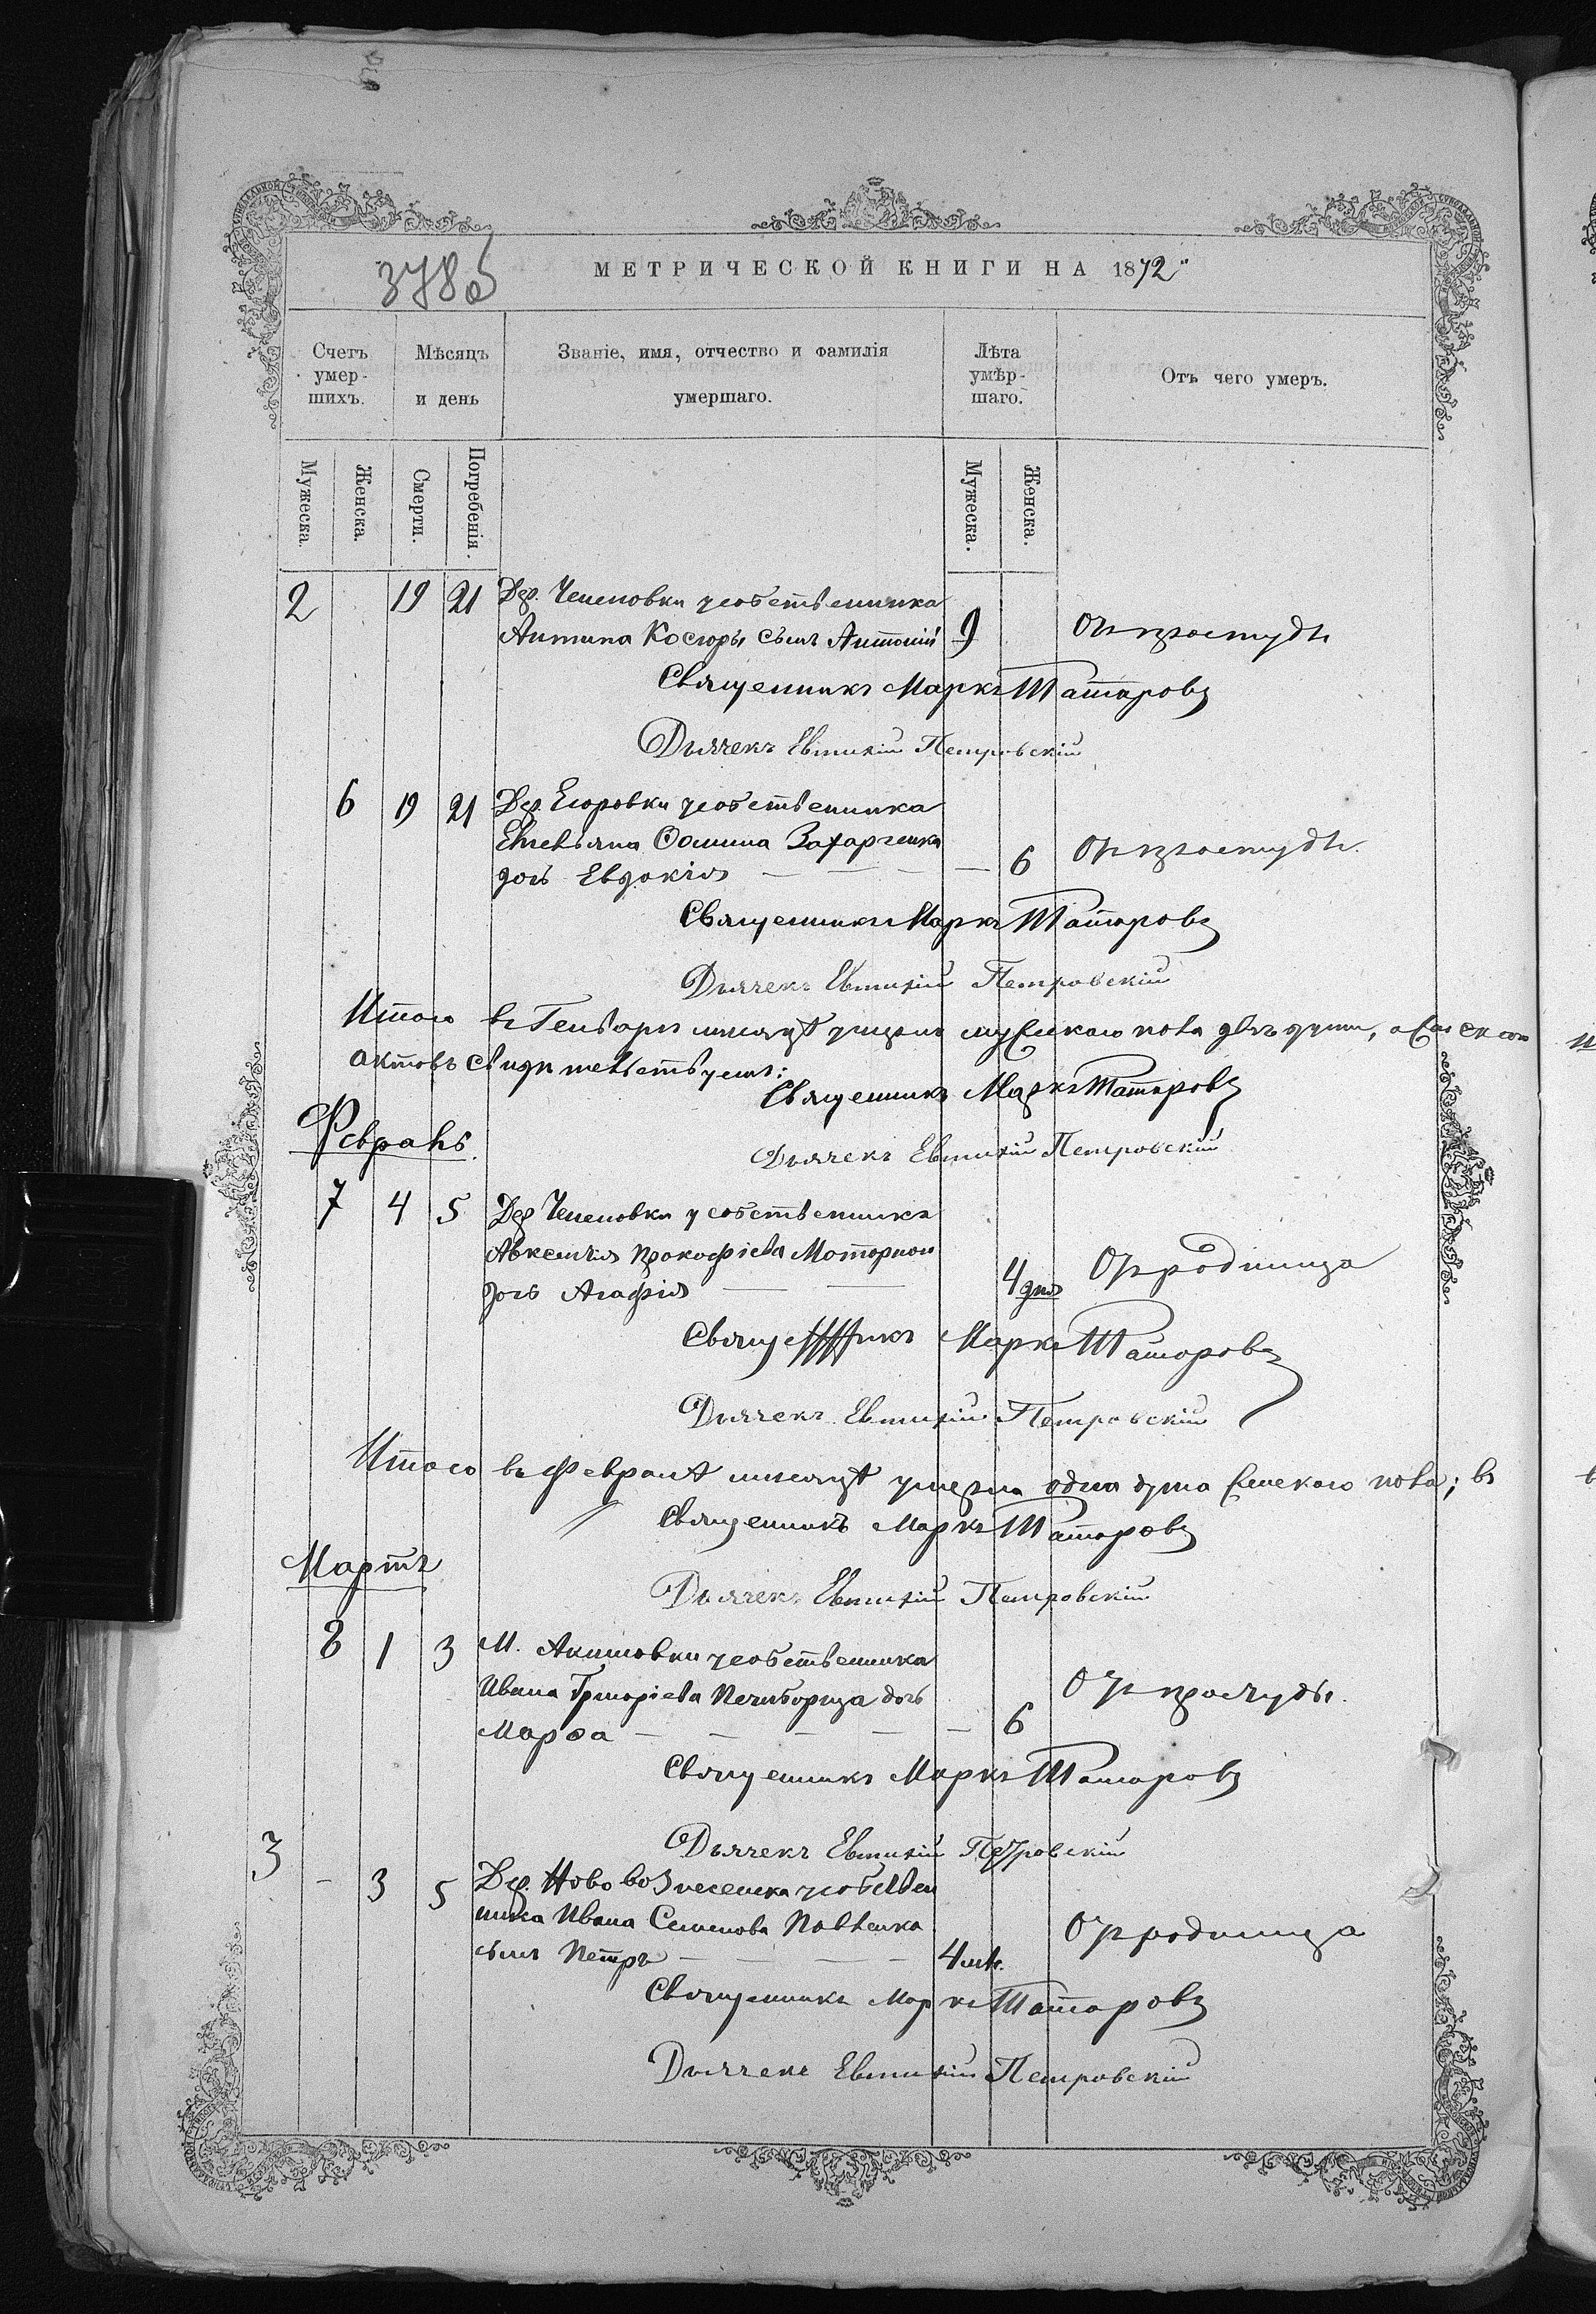 378 об
МЕТРИЧЕСКОЙ КНИГИ НА 1872
Счетъ умер-шихъ.
Мѣсяцъ и день
Званіе, имя, отчество и фамилія умершаго.
Лѣта умѣр-шаго.
Отъ чего умеръ.
Мужеска. Женска. Смерти. Погребенія. Мужеска. Женска.
2 19 21 Дер. собственника
Антипа Косюры сынъ Антоній 9 От простуды
Священникъ Маркъ Татаровъ
Дьячекъ Евтихій Петровскій
6 19 21 Дер. Егоровки собственника
Ѳомина Захарченка
дочь Евдокія 6 От простуды
Священникъ Маркъ Татаровъ
Дьячекъ Евтихій Петровскій
Итого въ Генварѣ мѣсяцѣ умерло мужскаго пола двѣ души, а
актовъ свидетельствуемъ:
Священникъ Маркъ Татаровъ
Дьячекъ Евтихій Петровскій
Февраль.
7 4 5 Дер собственника
Авксентія Прокофіева Моторного
дочь Агафія 4 дня От родимца
Священникъ Маркъ Татаровъ
Дьячекъ Евтихій Петровскій
Итого въ Февралѣ мѣсяцѣ умерла одна душа женскаго пола; въ
Священникъ Маркъ Татаровъ
Мартъ
Дьячекъ Евтихій Петровскій
8 1 3 М. Акимовки собственника
Ивана Григоріева дочь
Марѳа 6 От простуды.
Священникъ Маркъ Татаровъ
Дьячекъ Евтихій Петровскій
3 - 3 5 Дер. Нововознесенка собствен
ника Ивана Семенова Павленка
сынъ Петръ 4 мѣ. От родимца
Священникъ Маркъ Татаровъ
Дьячекъ Евтихій Петровскій